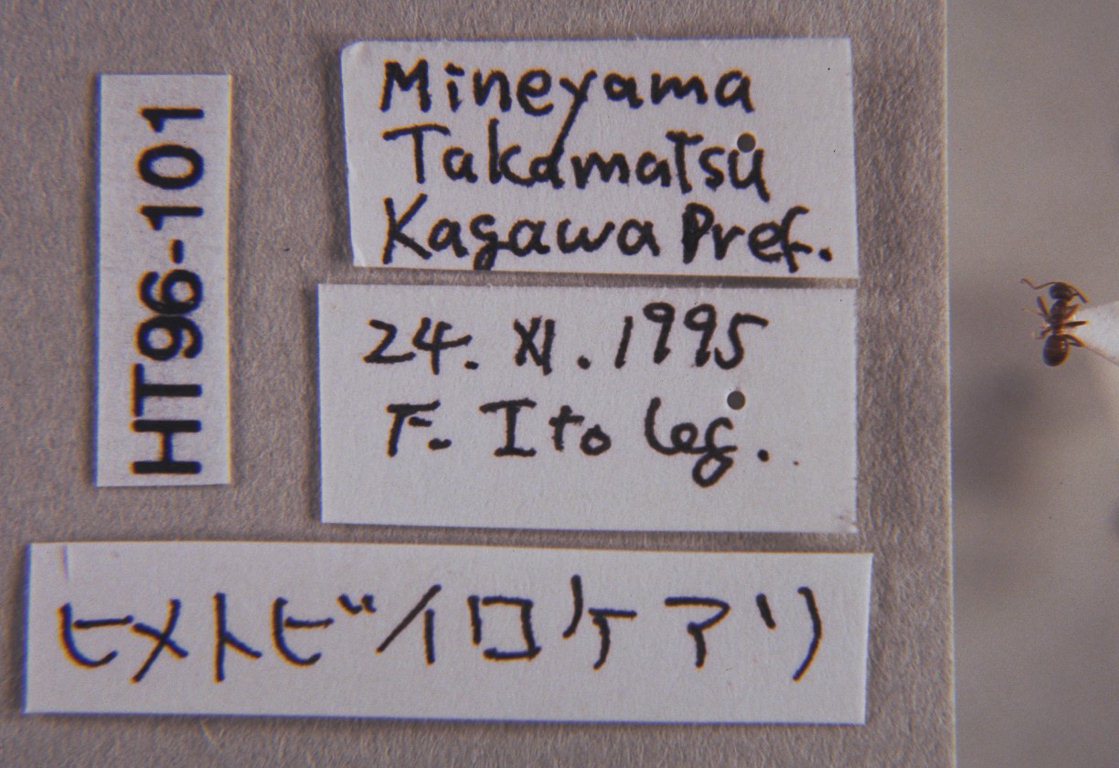 HT96-101
Mineyama
Takamatsu
Kagawa Pref.
24. XI. 1995
F. Ito leg.
ヒメトビイロケアリ